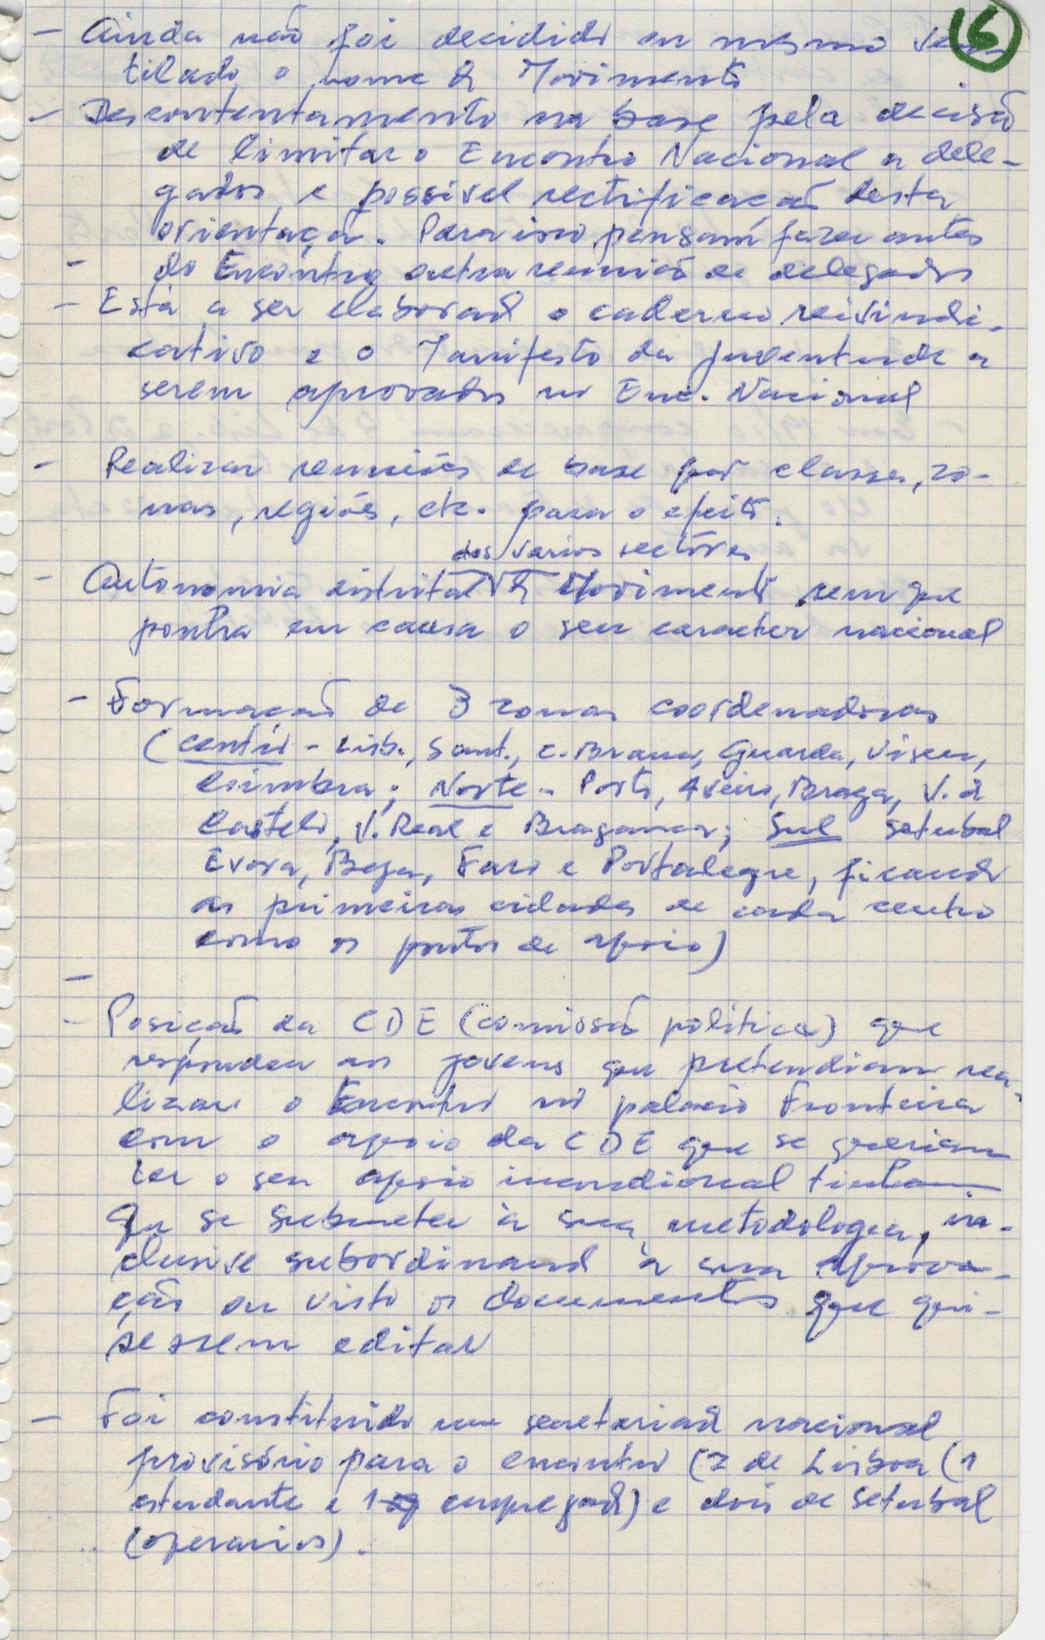 6
- Ainda não foi decidido ou mesmo ven
tilado o nome do Movimento
- Descontentamento na base pela decisão
de limitar o Encontro Nacional a dele-
gados e possível rectificação desta
orientação. Para isso pensam fazer antes
- do Encontro outra reunião de delegados
- Está a ser elaborado o caderno reivindi-
cativo e o Manifesto da Juventude a
serem aprovados no Enc. Nacional
- Realizar reuniões de base por classes, zo-
nas, regiões, etc. para o efeito.
dos varios sectores
- Autonomia distrital do Movimento sem que
ponha em causa o seu caracter nacional
- Formação de 3 zonas coordenadoras
(centro - Lisb., Sant., C. Branco, Guarda, Viseu,
Coimbra; Norte - Porto, Aveiro, Braga, V. do
Castelo, V. Real e Bragança; Sul Setubal
Evora, Beja, Faro e Portalegre, ficando
as primeiras cidades de cada centro
como os pontos de apoio)
-
- Posição da CDE (comissão política) que
respondeu aos jovens que pretendiam rea-
lizar o Encontro no palacio Fronteira
com o apoio da CDE que se queriam
ter o seu apoio incondicional tinham
que se submeter à sua metodologia, in-
clusive subordinando à sua aprova-
ção ou visto os documentos que qui-
sessem editar
- Foi constituido um secretariado nacional
provisório para o encontro (2 de Lisboa (1
estudante e 1 empregado) e dois de Setubal
(operarios).